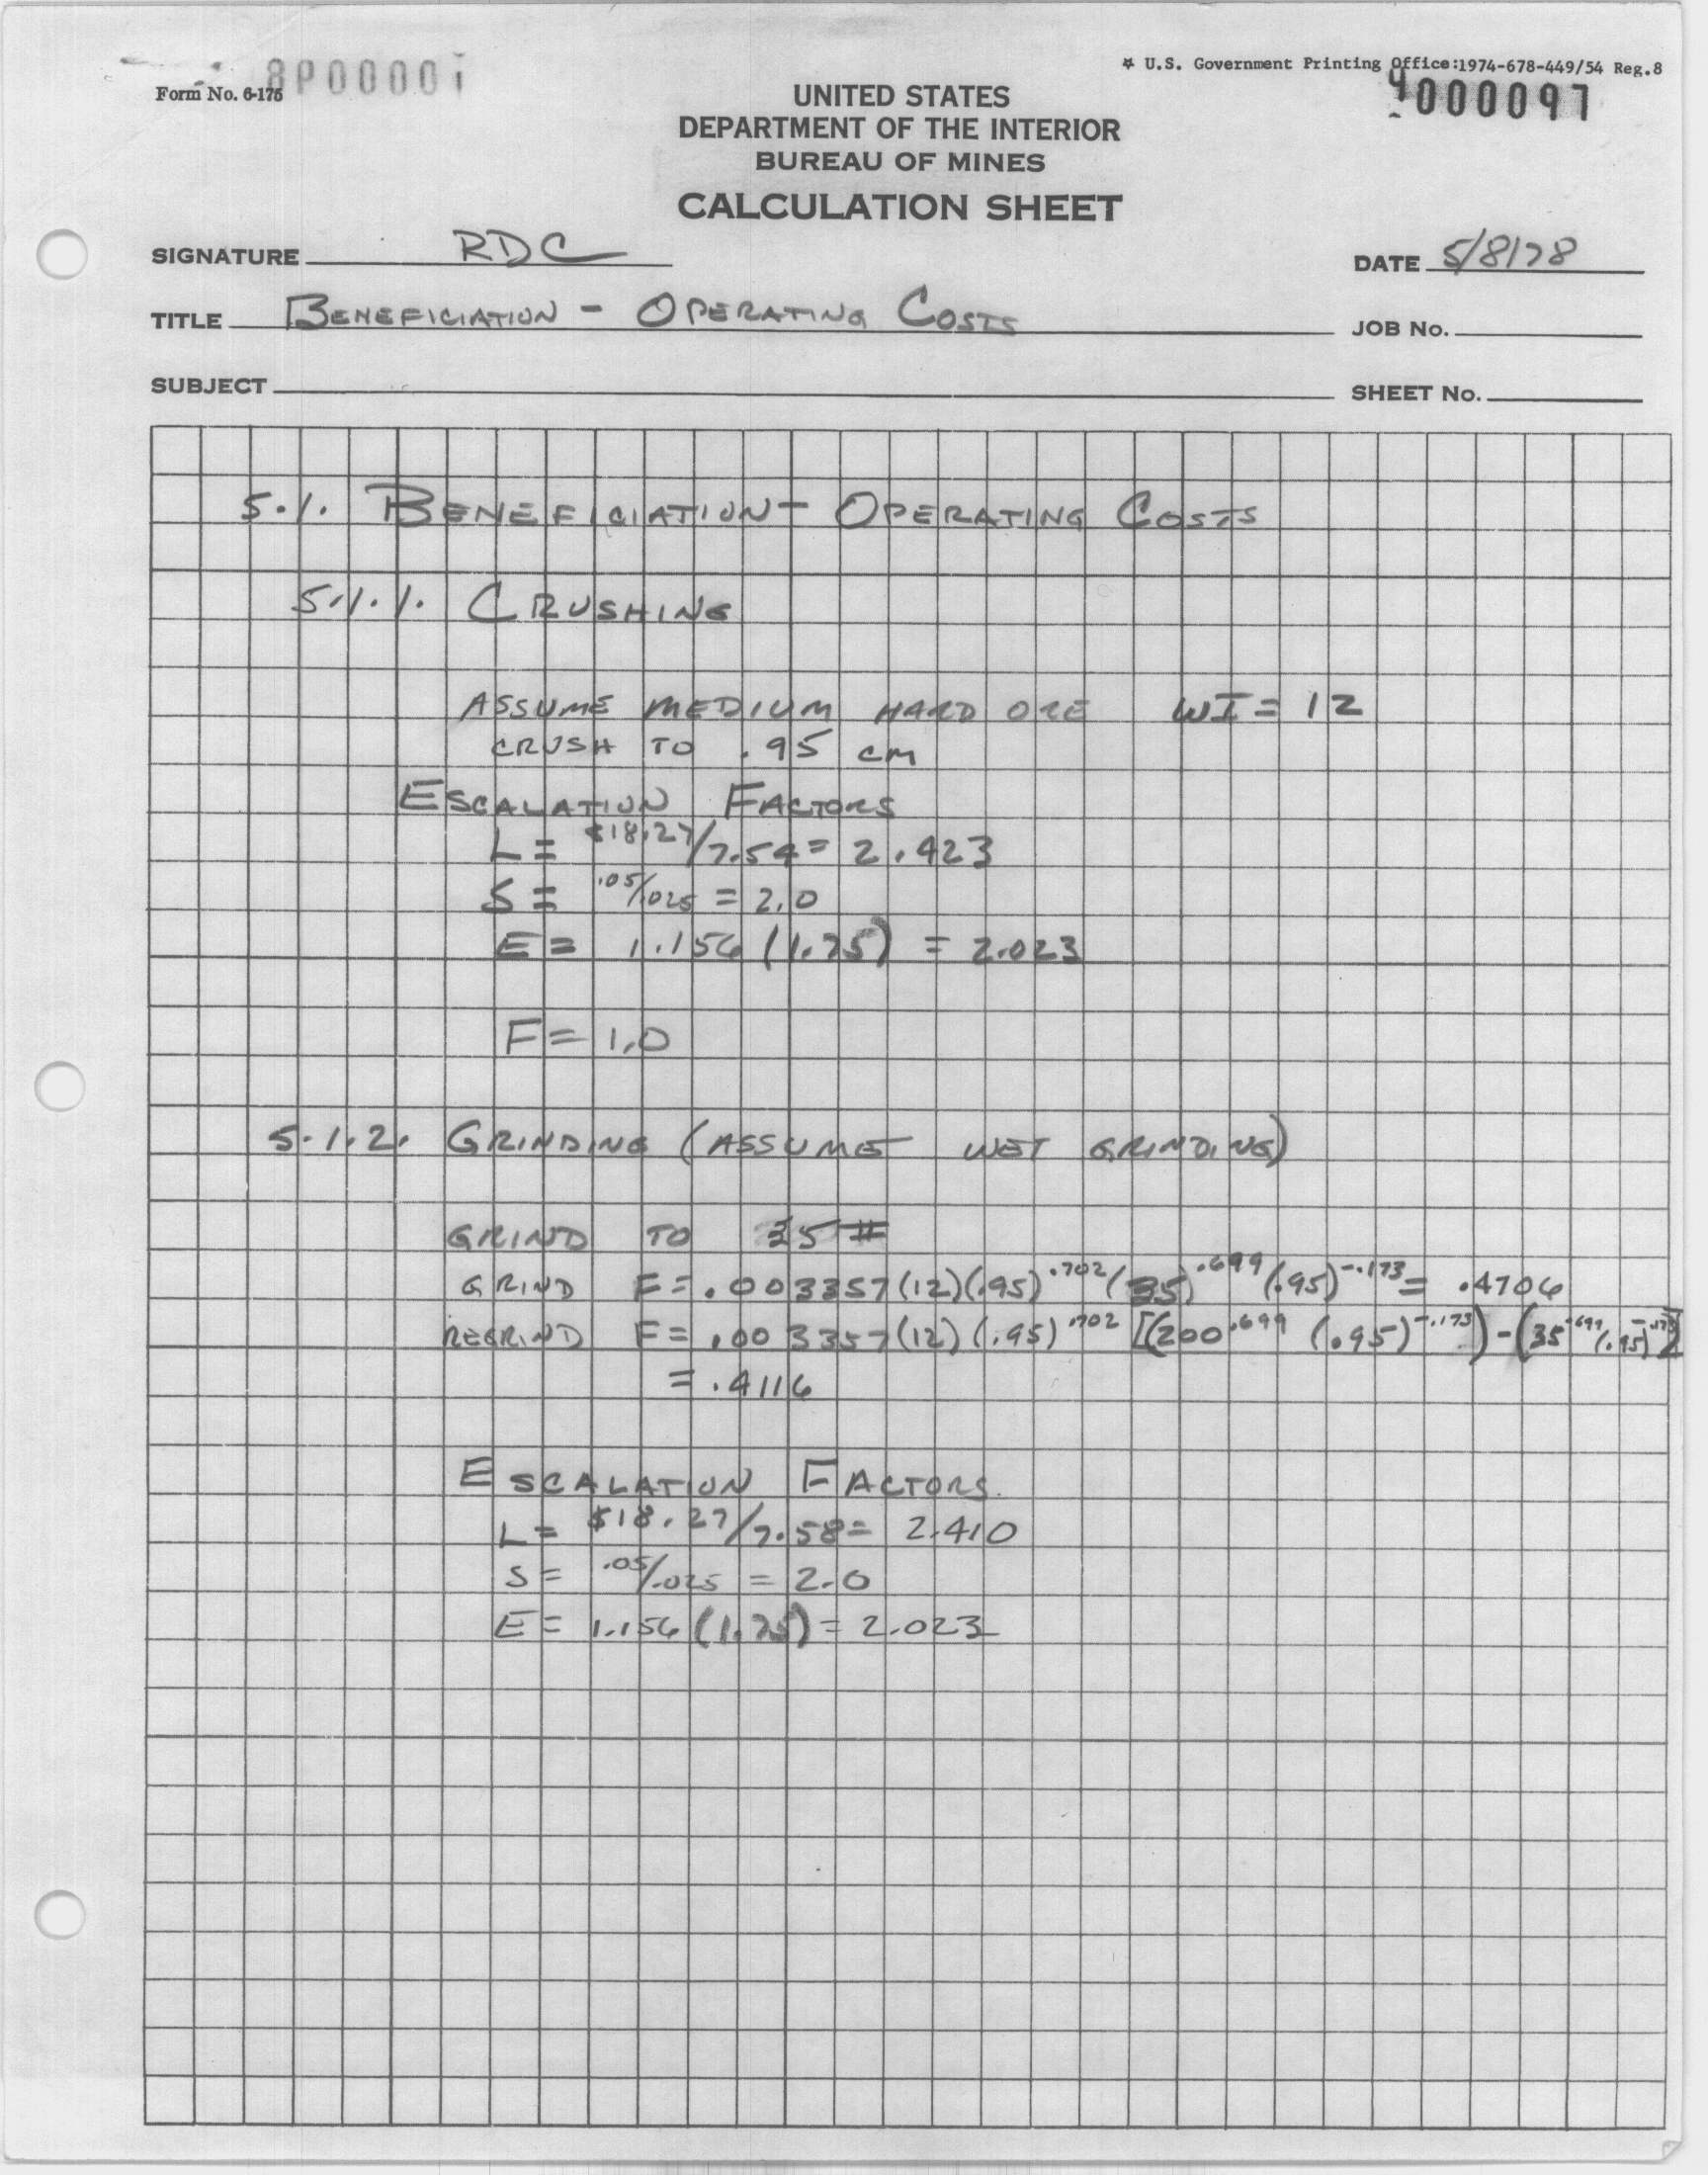 8P00001
☆ U.S. Government Printing Office:1974-678-449/54 Reg.8
Form No. 6-175
UNITED STATES
4000097
DEPARTMENT OF THE INTERIOR
BUREAU OF MINES
CALCULATION SHEET
SIGNATURE RDC DATE 5/8/78
TITLE BENEFICIATION - OPERATING COSTS JOB No.
SUBJECT SHEET No.
5.1. BENEFICIATION - OPERATING COSTS
5.1.1. CRUSHING
ASSUME MEDIUM HARD ORE WI = 12
CRUSH TO .95 cm
ESCALATION FACTORS
L = $18.27/7.54 = 2.423
S = .05/.025 = 2.0
E = 1.156 (1.75) = 2.023
F = 1.0
5.1.2. GRINDING (ASSUME WET GRINDING)
GRIND TO 35 #
GRIND F = .003357(12)(.95)^.702 (35)^.699 (.95)^-.173 = .4706
REGRIND F = .003357(12)(.95)^.702 [(200^.699 (.95)^-.173) - (35^.699 (.95)^-.173)]
= .4116
ESCALATION FACTORS
L = $18.27/7.58 = 2.410
S = .05/.025 = 2.0
E = 1.156 (1.75) = 2.023